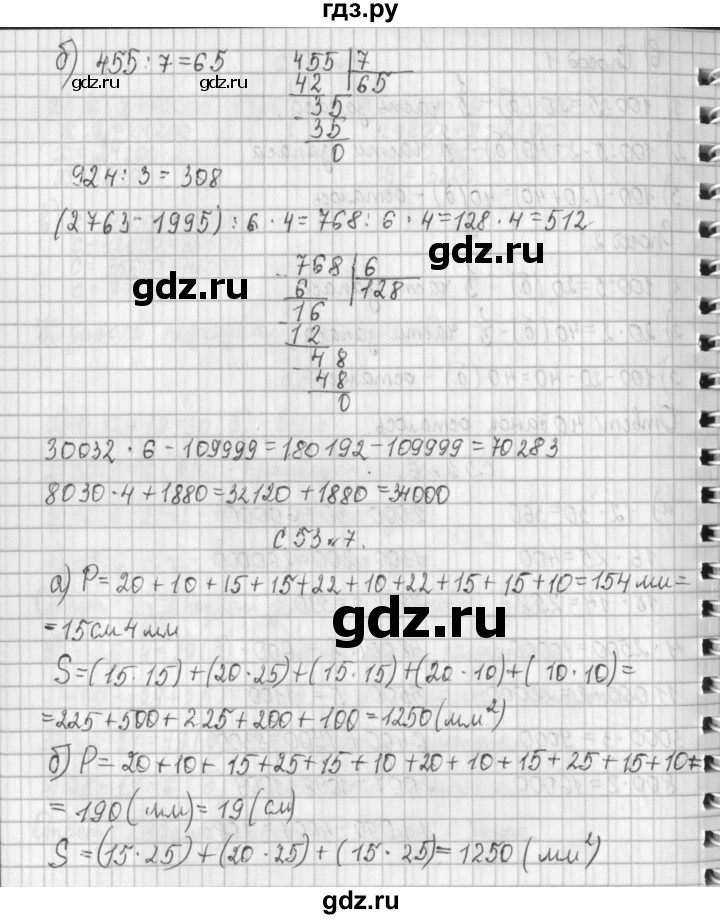 гдз.ру
б) 455 : 7 = 65
455 7
42 65
35
35
0
gdz.ru gdz.ru
924 : 3 = 308
(2763 - 1995) : 6 · 4 = 768 : 6 · 4 = 128 · 4 = 512
gdz.ru
768 6
6 128
gdz.ru
16
12
48
48
0
30032 · 6 - 109999 = 180192 - 109999 = 70283
8030 · 4 + 1880 = 32120 + 1880 = 34000
gdz.ru
с. 53 № 7.
а) P = 20 + 10 + 15 + 15 + 22 + 10 + 22 + 15 + 15 + 10 = 154 мм =
= 15 см 4 мм
gdz.ru
S = (15 · 15) + (20 · 25) + (15 · 15) + (20 · 10) + (10 · 10) =
= 225 + 500 + 225 + 200 + 100 = 1250 (мм²)
gdz.ru
б) P = 20 + 10 + 15 + 25 + 15 + 10 + 20 + 10 + 15 + 25 + 15 + 10 =
= 190 (мм) = 19 (см)
gdz.ru
S = (15 · 25) + (20 · 25) + (15 · 25) = 1250 (мм²)
gdz.ru